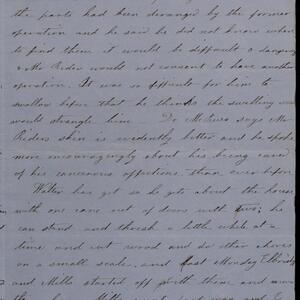 the parts had been deranged by the former
operation and he said he did not know where
to find them it would be difficult & dangerous
& Mr Rider would not consent to have another
operation. It was so difficult for him to
swallow before that he thinks the swelling
would strangle him Dr says Mr
Riders skin is evidently better and he spoke
more encouragingly about his being cured
of his cancerous affections than ever before
Walter has got so he gets about the house
with one cane out of doors with two; he
can stand and thresh a little while at a
time and cut wood and do other chores
on a small scale. and last Monday
and Mills started off with them and